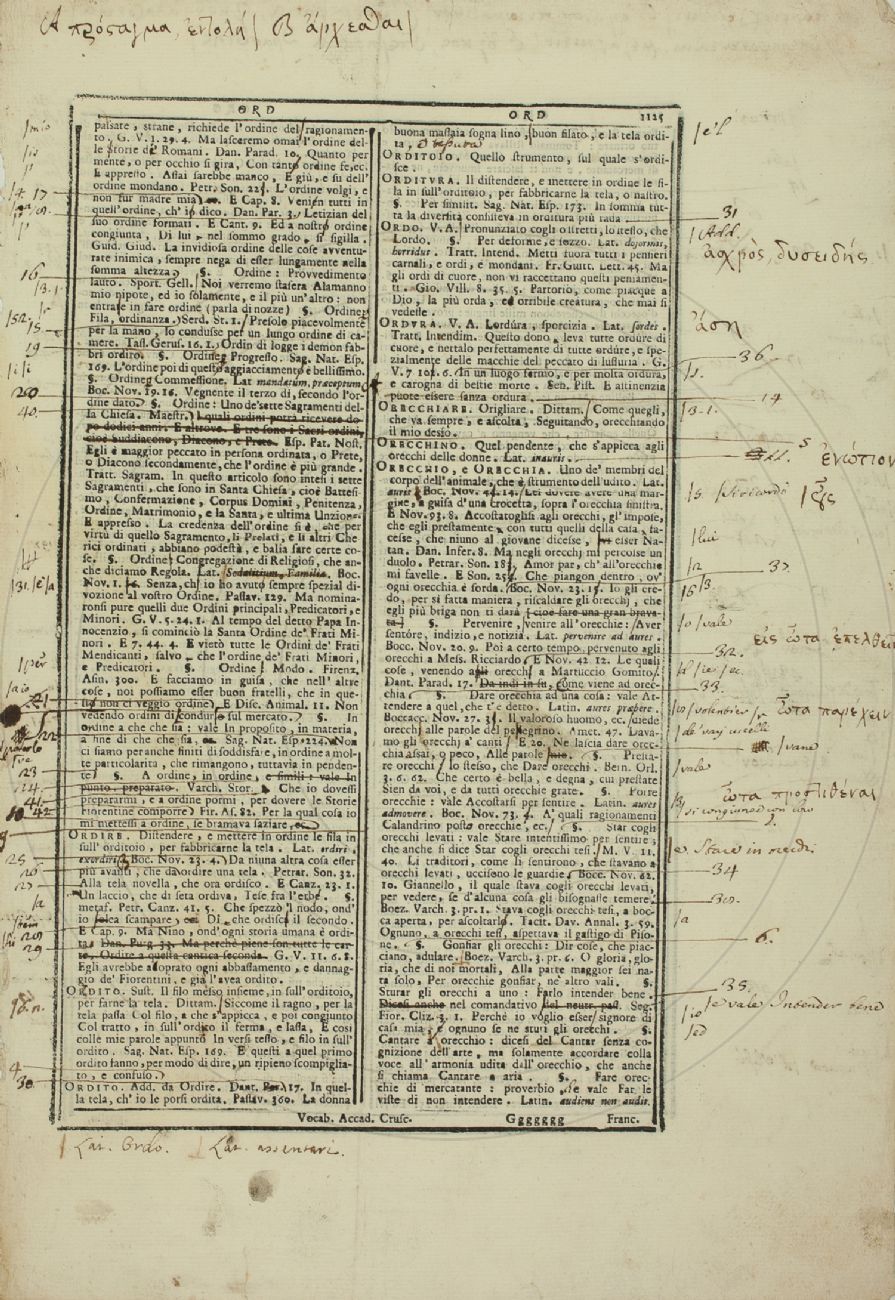 Α πρόςαγμα, ἐντολή/ Β ἄρχεσθαι/
ORD
ORD 1125
palsate, strane, richiede l'ordine del ragionamen-
to. G. V. 1. 29. 4. Ma lasceremo omai l'ordine del-
le storie de' Romani. Dan. Parad. 10. Quanto per
mente, o per occhio si gira, Con tanto ordine fe, ec.
E appresso. Assai sarebbe manco, E giù, e su dell'
ordine mondano. Petr. Son. L'ordine volgi, e
non fur madre mia E Cap. 8. Venien tutti in
quell'ordine, ch'io dico. Dan. Par. 3. Letizian del
suo ordine formati. E Cant. 9. Ed a nostro ordine
congiunta, Di lui nel sommo grado si sigilla.
Guid. Giud. La invidiosa ordine delle cose avventu-
rate inimica, sempre nega di esser lungamente nella
somma altezza §. Ordine: Provvedimento
lauto. Sport. Gell. Noi verremo stasera Alamanno
mio nipote, ed io solamente, e il più un'altro: non
entrase in fare ordine (parla di nozze) §. Ordine
Fila, ordinanza. Serd. St. 1. Presolo piacevolmente
per la mano, lo condusse per un lungo ordine di ca-
mere. Tass. Gerus. 16. 1. Ordin di logge i demon fab-
bri ordiro. §. Ordine Progresso. Sag. Nat. Esp.
169. L'ordine poi di questo agghiacciamento è bellissimo.
§. Ordine Commessione. Lat mandatum, præceptum
Boc. Nov. 19. 16. Vegnente il terzo dì, secondo l'or-
dine dato §. Ordine: Uno de' sette Sagramenti del-
la Chiesa. Maestr. I quali ordini potrà ricevere do-
po dodici anni. E altrove. E tre sono i Sacri ordini,
cioè Suddiacono, Diacono, e Prete. Esp. Pat. Nost.
Egli è maggior peccato in persona ordinata, o Prete,
o Diacono secondamente, che l'ordine è più grande.
Tratt. Sagram. In questo articolo sono intesi i sette
Sagramenti, che sono in Santa Chiesa, cioè Battesi-
mo, Confermazione, Corpus Domini, Penitenza,
Ordine, Matrimonio, e la Santa, e ultima Unzione.
E appresso. La credenza dell'ordine si è, che per
virtù di questo Sagramento, li Prelati, e li altri Che
rici ordinati, abbiano podestà, e balia fare certe co-
se. §. Ordine Congregazione di Religiosi, che an-
che diciamo Regola. Lat. Sodalitium, Familia. Boc.
Nov. 1. Senza, ch'io ho avuto sempre spezial di-
vozione al vostro Ordine. Passav. 129. Ma nomina-
ronsi pure quelli due Ordini principali, Predicatori, e
Minori. G. V. 5. 24. 1. Al tempo del detto Papa In-
nocenzio, si cominciò la Santa Ordine de' Frati Mi-
nori. E 7. 44. 4. E vietò tutte le Ordini de' Frati
Mendicanti, salvo che l'ordine de' Frati Minori,
e Predicatori. §. Ordine Modo. Firenz.
Asin. 300. E facciamo in guisa, che nell'altre
cose, noi possiamo esser buon fratelli, che in que-
sta non ci veggio ordine E Disc. Animal. 11. Non
vedendo ordini di condurlo sul mercato. §. In
ordine a che che sia: vale In proposito, in materia,
a fine di che che sia. Sag. Nat. Esp. 224. Non
ci siamo per anche finiti di soddisfare, in ordine a mol-
te particolarità, che rimangono, tuttavia in penden-
te §. A ordine, in ordine, e simili: vale In
punto, preparato. Varch. Stor. Che io dovessi
prepararmi, e a ordine pormi, per dovere le Storie
Fiorentine comporre Fir. As. 82. Per la qual cosa io
mi mettessi a ordine, se bramava saziare
ORDIRE. Distendere, e mettere in ordine le fila in
sull'orditoio, per fabbricarne la tela. Lat. ordiri,
exordiri. Boc. Nov. 23. 4. Da niuna altra cosa esser
più avanti, che da ordire una tela. Petrar. Son. 32.
Alla tela novella, che ora ordisco. E Canz. 23. 1.
Un laccio, che di seta ordiva, Tese fra l'erbe. §.
metaf. Petr. Canz. 41. 5. Che spezzò 'l nodo, ond'
io solea scampare, Di che ordisci il secondo.
E Cap. 9. Ma Nino, ond'ogni storia umana è ordi-
ta. Dan. Purg. 33. Ma perchè piene son tutte le car-
te, Ordite a questa cantica seconda. G. V. 11. 6. 8.
Egli avrebbe adoprato ogni abbassamento, e dannag-
gio de' Fiorentini, e già l'avea ordito.
ORDITO. Sust. Il filo messo insieme, in sull'orditoio,
per farne la tela. Dittam. Siccome il ragno, per la
tela passa Col filo, a che s'appicca, e poi congiunto
Col tratto, in sull'ordito il ferma, e lassa, E così
colle mie parole appunto In versi tesso, e filo in sull'
ordito. Sag. Nat. Esp. 169. E questi a quel primo
ordito fanno, per modo di dire, un ripieno scompiglia-
to, e confuso
ORDITO. Add. da Ordire. Dant. 17. In quel-
la tela, ch'io le porsi ordita. Passav. 360. La donna
buona massaia sogna lino, buon filato, e la tela ordi-
ta,
ORDITOIO. Quello strumento, sul quale s'ordi-
sce.
ORDITURA. Il distendere, e mettere in ordine le fi-
la in sull'orditoio, per fabbricarne la tela, o nastro.
§. Per similit. Sag. Nat. Esp. 173. In somma tut-
ta la diversità consisteva in orditura più rada
ORDO. V. A. Pronunziato cogli o stretti, lo stesso, che
Lordo. §. Per deforme, e sozzo. Lat. deformis,
horridus. Tratt. Intend. Metti fuora tutti i pensieri
carnali, e ordi, e mondani. Fr. Guitt. Lett. 45. Ma
gli ordi di cuore, non vi raccettano questi pensamen-
ti. Gio. Vill. 8. 35. 5. Partorio, come piacque a
Dio, la più orda, ed orribile creatura, che mai si
vedesse.
ORDURA. V. A. Lordura, sporcizia. Lat. sordes.
Tratt. Intendim. Questo dono leva tutte ordure di
cuore, e nettalo perfettamente di tutte ordure, e spe-
zialmente delle macchie del peccato di lussuria. G.
V. 7 101. 6. In un luogo fermo, e per molta ordura,
e carogna di bestie morte. Sen. Pist. E astinenzia
puote essere sanza ordura.
ORECCHIARE. Origliare. Dittam. Come quegli,
che va sempre, e ascolta, Seguitando, orecchiando
il mio desio.
ORECCHINO. Quel pendente, che s'appicca agli
orecchi delle donne. Lat. inauris.
ORECCHIO, e ORECCHIA. Uno de' membri del
corpo dell'animale, che è strumento dell'udito. Lat.
auris Boc. Nov. 44. 14. Lei dovere avere una mar-
gine, a guisa d'una crocetta, sopra l'orecchia sinistra.
E Nov. 93. 8. Accostatoglisi agli orecchi, gl'impose,
che egli prestamente, con tutti quelli della casa, fa-
cesse, che niuno al giovane dicesse, esser Na-
tan. Dan. Infer. 8. Ma negli orecchi mi percosse un
duolo. Petrar. Son. Amor par, ch'all'orecchie
mi favelle. E Son. Che piangon dentro, ov'
ogni orecchia è sorda. Boc. Nov. 23. 15. Io gli cre-
do, per sì fatta maniera, riscaldare gli orecchi, che
egli più briga non ti darà (cioè fare una gran brava-
ta) §. Pervenire, venire all'orecchie: Aver
sentore, indizio, e notizia. Lat. pervenire ad aures.
Bocc. Nov. 20. 9. Poi a certo tempo, pervenuto agli
orecchi a Mess. Ricciardo E Nov. 42 12. Le quali
cose, venendo agli orecchi a Martuccio Gomito
Dant. Parad. 17. Da indi in su, Come viene ad orec-
chia §. Dare orecchia ad una cosa: vale At-
tendere a quel, che t'è detto. Latin. aures præbere.
Boccacc. Nov. 27. Il valoroso huomo, ec. diede
orecchi alle parole del pellegrino. Amet. 47. Dava-
mo gli orecchi a' canti E 20. Ne lascia dare orec-
chia assai, o poco, Alle parole §. Presta-
re orecchi lo stesso, che Dare orecchi. Ben. Orl.
3. 6. 62. Che certo è bella, e degna, cui prestate
Sien da voi, e da tutti orecchie grate. §. Porre
orecchie: vale Accostarsi per sentire. Latin. aures
admovere. Boc. Nov. 73. 4. A' quali ragionamenti
Calandrino posto orecchie, ec. §. Star cogli
orecchi levati: vale Stare intentissimo per sentire;
che anche si dice Star cogli orecchi tesi. M. V. 11.
40. Li traditori, come si sentirono, che stavano a
orecchi levati, uccisono le guardie. Bocc. Nov. 62.
10. Giannello, il quale stava cogli orecchi levati,
per vedere, se d'alcuna cosa gli bisognasse temere.
Boez. Varch. 3. pr. 1. Stava cogli orecchi tesi, a boc-
ca aperta, per ascoltarlo. Tacit. Dav. Annal. 3. 59.
Ognuno, a orecchi tesi, aspettava il gastigo di Piso-
ne. §. Gonfiar gli orecchi: Dir cose, che piac-
ciano, adulare. Boez. Varch. 3. pr. 6. O gloria, glo-
ria, che di noi mortali, Alla parte maggior sei na-
ta solo, Per orecchie gonfiar, ne' altro vali. §.
Sturar gli orecchi a uno: Farlo intender bene.
Dicesi anche nel comandativo Seg.
Fior. Cliz. 3. 1. Perchè io voglio esser signore di
casa mia, e ognuno se ne sturi gli orecchi. §.
Cantare a orecchio: dicesi del Cantar senza co-
gnizione dell'arte, ma solamente accordare colla
voce all'armonia udita dall'orecchio, che anche
si chiama Cantare a aria. §. Fare orec-
chie di mercatante: proverbio, e vale Far le
viste di non intendere. Latin. audiens non audit.
Vocab. Accad. Crusc. Ggggggg Franc.
Lat. Ordo. Lat. assentari.
31
/Add.
αςχρὸς, δυσειδής
ἄση
36
14
ἐνώπιον
32
εἰς ὦτα ἐπελθεῖν
33
ὦτα παρέχειν
/vale
ὦτα προςτιθέναι
34
6.
35.
/e vale Intender bene